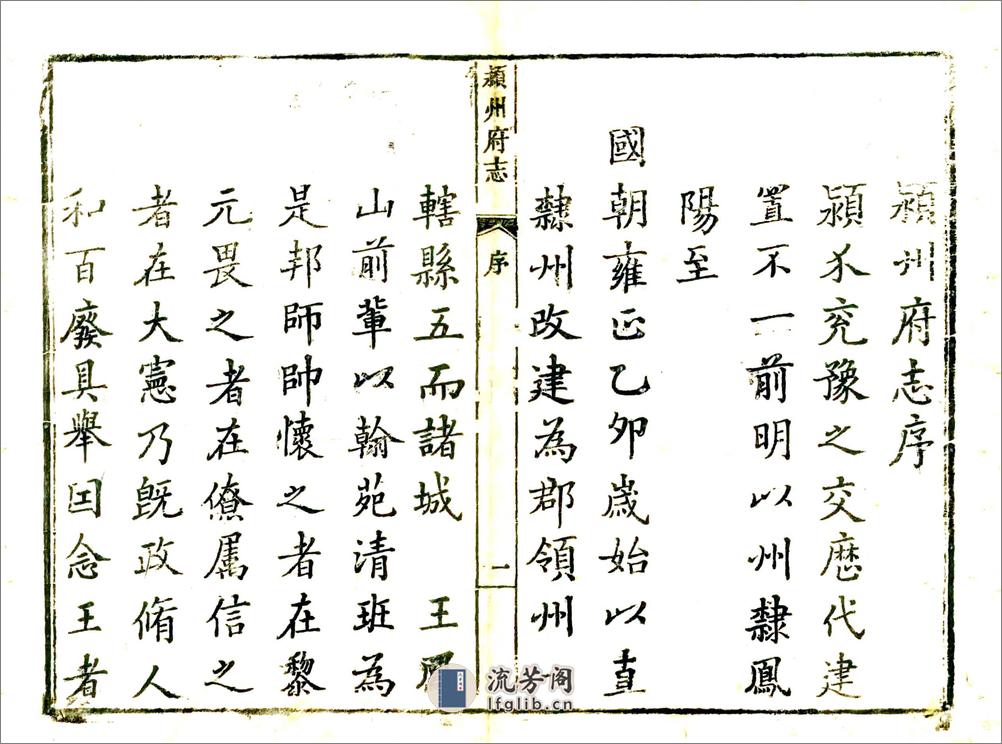 潁州府志序
潁介兖豫之交歷代建
置不一前明以州隸鳳
陽至
國朝雍正乙卯歲始以直
隸州改建為郡領州
潁州府志
序
一
轄縣五而諸城 王
山前輩以翰苑清班為
是邦師帥懷之者在黎
元畏之者在僚属信之
者在大憲乃既政脩人
和百廢具舉因念王者
流芳阁
lfglib.cn